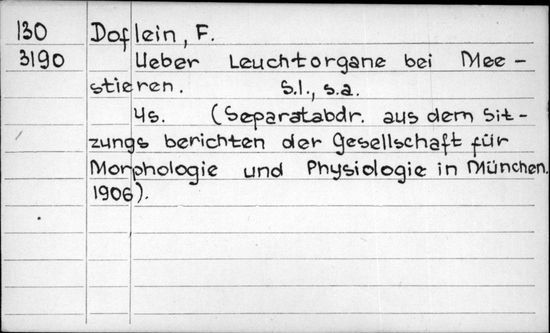 130 Doflein, F.
3190 Ueber Leuchtorgane bei Mee-
stieren. S.l., s.a.
4s. (Separatabdr. aus dem Sit-
zungs berichten der Gesellschaft für
Morphologie und Physiologie in München.
1906).